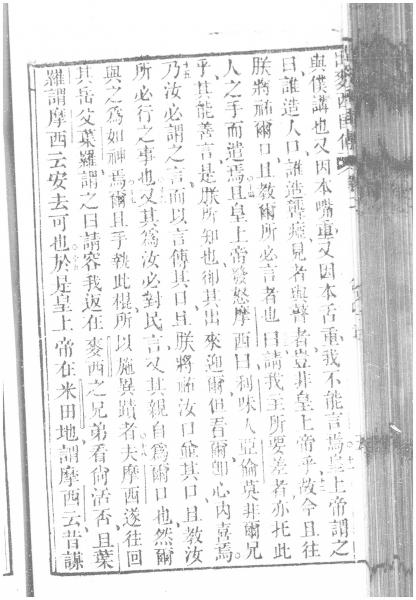 與僕講也又因本嘴重又因本舌重我不能言焉皇上帝謂之
曰誰造人口誰造聾瘂見者與瞽者豈非皇上帝乎故今且往
朕將祐爾口且教爾所必言者也曰請我主所要差者亦托此
人之手而遣焉且皇上帝發怒摩西曰利味人亞倫莫非爾兄
乎其能善言是朕所知也卻其出來迎爾但看爾即心內喜焉
乃汝必謂之言而以言傳其口且朕將祐汝口偷其口且教汝
所必行之事也又其為汝必對民言又其親自為爾口也然爾
與之為如神焉爾且手執此棍所以施異蹟者夫摩西遂往回
其岳父葉羅謂之曰請容我返在麥西之兄弟看尚活否且葉
羅謂摩西云安去可也於是皇上帝在米田地謂摩西云昔謀